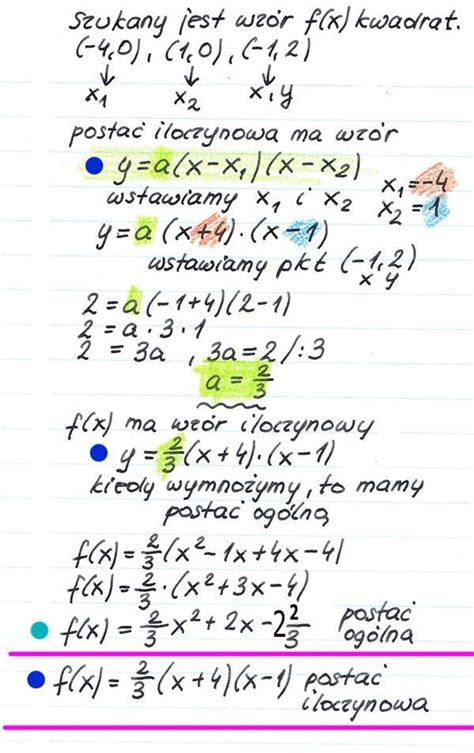 Szukany jest wzór f(x) kwadrat.
(-4,0), (1,0), (-1,2)
↓ ↓ ↓
x₁ x₂ x, y
postać iloczynowa ma wzór
y=a(x-x₁)(x-x₂)
wstawiamy x₁ i x₂
x₁=-4
x₂=1
y=a(x+4)·(x-1)
wstawiamy pkt (-1,2)
x y
2=a(-1+4)(2-1)
2=a·3·1
2=3a, 3a=2/:3
a=2/3
f(x) ma wzór iloczynowy
y=2/3(x+4)·(x-1)
kiedy wymnożymy, to mamy
postać ogólną
f(x)=2/3(x²-1x+4x-4)
f(x)=2/3·(x²+3x-4)
f(x)=2/3x²+2x-2 2/3 postać
ogólna
f(x)=2/3(x+4)(x-1) postać
iloczynowa